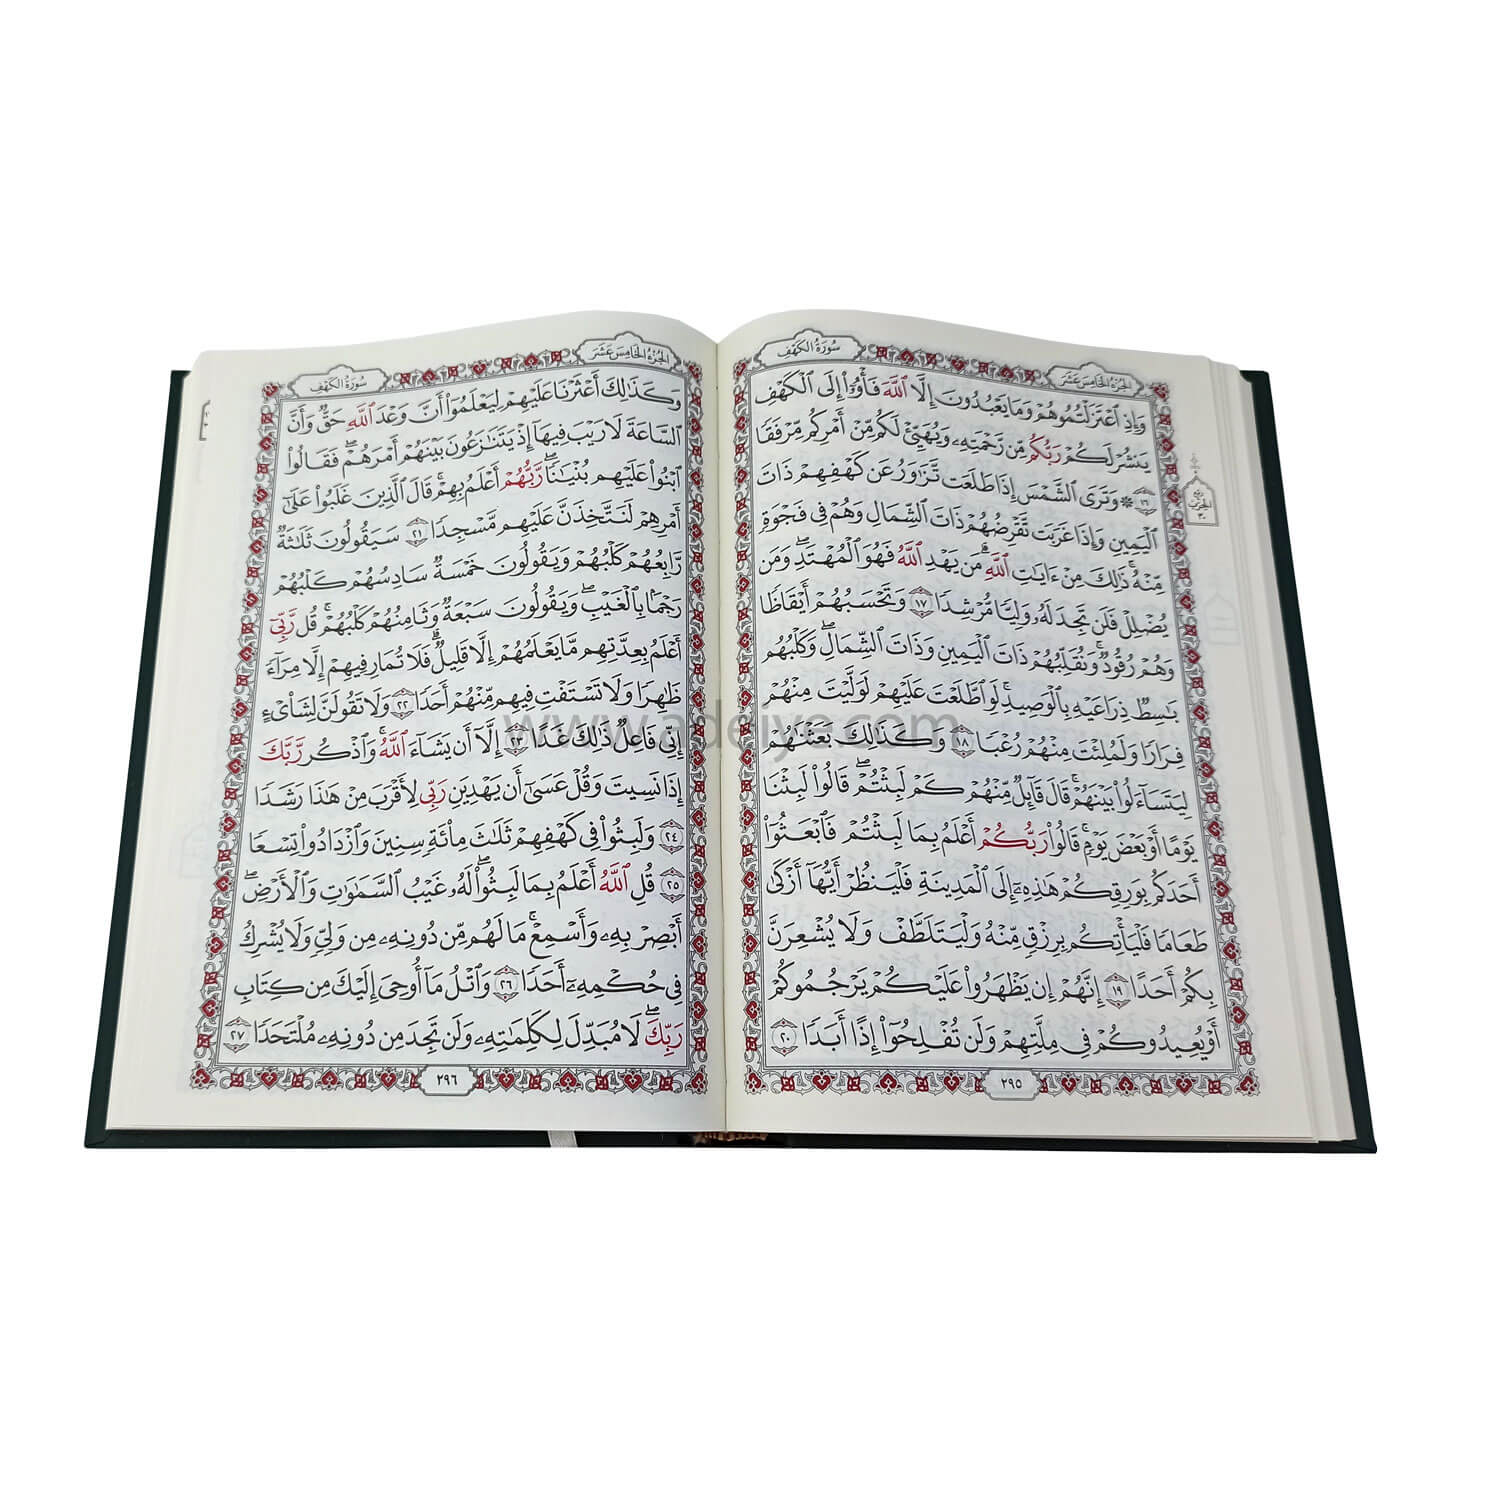 سُورَةُ الكَهْفِ
الجُزْءُ الخَامِسَ عَشَرَ
وَإِذِ ٱعْتَزَلْتُمُوهُمْ وَمَا يَعْبُدُونَ إِلَّا ٱللَّهَ فَأْوُۥٓا۟ إِلَى ٱلْكَهْفِ
يَنشُرْ لَكُمْ رَبُّكُم مِّن رَّحْمَتِهِۦ وَيُهَيِّئْ لَكُم مِّنْ أَمْرِكُم مِّرْفَقًا
١٦ ۞ وَتَرَى ٱلشَّمْسَ إِذَا طَلَعَت تَّزَٰوَرُ عَن كَهْفِهِمْ ذَاتَ
ٱلْيَمِينِ وَإِذَا غَرَبَت تَّقْرِضُهُمْ ذَاتَ ٱلشِّمَالِ وَهُمْ فِى فَجْوَةٍ
مِّنْهُ ۚ ذَٰلِكَ مِنْ ءَايَٰتِ ٱللَّهِ ۗ مَن يَهْدِ ٱللَّهُ فَهُوَ ٱلْمُهْتَدِ ۖ وَمَن
يُضْلِلْ فَلَن تَجِدَ لَهُۥ وَلِيًّا مُّرْشِدًا ١٧ وَتَحْسَبُهُمْ أَيْقَاظًا
وَهُمْ رُقُودٌ ۚ وَنُقَلِّبُهُمْ ذَاتَ ٱلْيَمِينِ وَذَاتَ ٱلشِّمَالِ ۖ وَكَلْبُهُم
بَٰسِطٌ ذِرَاعَيْهِ بِٱلْوَصِيدِ ۚ لَوِ ٱطَّلَعْتَ عَلَيْهِمْ لَوَلَّيْتَ مِنْهُمْ
فِرَارًا وَلَمُلِئْتَ مِنْهُمْ رُعْبًا ١٨ وَكَذَٰلِكَ بَعَثْنَٰهُمْ
لِيَتَسَآءَلُوا۟ بَيْنَهُمْ ۚ قَالَ قَآئِلٌ مِّنْهُمْ كَمْ لَبِثْتُمْ ۖ قَالُوا۟ لَبِثْنَا
يَوْمًا أَوْ بَعْضَ يَوْمٍ ۚ قَالُوا۟ رَبُّكُمْ أَعْلَمُ بِمَا لَبِثْتُمْ فَٱبْعَثُوٓا۟
أَحَدَكُم بِوَرِقِكُمْ هَٰذِهِۦٓ إِلَى ٱلْمَدِينَةِ فَلْيَنظُرْ أَيُّهَآ أَزْكَىٰ
طَعَامًا فَلْيَأْتِكُم بِرِزْقٍ مِّنْهُ وَلْيَتَلَطَّفْ وَلَا يُشْعِرَنَّ
بِكُمْ أَحَدًا ١٩ إِنَّهُمْ إِن يَظْهَرُوا۟ عَلَيْكُمْ يَرْجُمُوكُمْ
أَوْ يُعِيدُوكُمْ فِى مِلَّتِهِمْ وَلَن تُفْلِحُوٓا۟ إِذًا أَبَدًا ٢٠
٢٩٥
ربع
الحزب
٣٠
الجُزْءُ الخَامِسَ عَشَرَ
سُورَةُ الكَهْفِ
وَكَذَٰلِكَ أَعْثَرْنَا عَلَيْهِمْ لِيَعْلَمُوٓا۟ أَنَّ وَعْدَ ٱللَّهِ حَقٌّ وَأَنَّ
ٱلسَّاعَةَ لَا رَيْبَ فِيهَآ إِذْ يَتَنَٰزَعُونَ بَيْنَهُمْ أَمْرَهُمْ ۖ فَقَالُوا۟
ٱبْنُوا۟ عَلَيْهِم بُنْيَٰنًا ۖ رَّبُّهُمْ أَعْلَمُ بِهِمْ ۚ قَالَ ٱلَّذِينَ غَلَبُوا۟ عَلَىٰٓ
أَمْرِهِمْ لَنَتَّخِذَنَّ عَلَيْهِم مَّسْجِدًا ٢١ سَيَقُولُونَ ثَلَٰثَةٌ
رَّابِعُهُمْ كَلْبُهُمْ وَيَقُولُونَ خَمْسَةٌ سَادِسُهُمْ كَلْبُهُمْ
رَجْمًۢا بِٱلْغَيْبِ ۖ وَيَقُولُونَ سَبْعَةٌ وَثَامِنُهُمْ كَلْبُهُمْ ۚ قُل رَّبِّىٓ
أَعْلَمُ بِعِدَّتِهِم مَّا يَعْلَمُهُمْ إِلَّا قَلِيلٌ ۗ فَلَا تُمَارِ فِيهِمْ إِلَّا مِرَآءً
ظَٰهِرًا وَلَا تَسْتَفْتِ فِيهِم مِّنْهُمْ أَحَدًا ٢٢ وَلَا تَقُولَنَّ لِشَا۟ىْءٍ
إِنِّى فَاعِلٌ ذَٰلِكَ غَدًا ٢٣ إِلَّآ أَن يَشَآءَ ٱللَّهُ ۚ وَٱذْكُر رَّبَّكَ
إِذَا نَسِيتَ وَقُلْ عَسَىٰٓ أَن يَهْدِيَنِ رَبِّى لِأَقْرَبَ مِنْ هَٰذَا رَشَدًا
٢٤ وَلَبِثُوا۟ فِى كَهْفِهِمْ ثَلَٰثَ مِا۟ئَةٍ سِنِينَ وَٱزْدَادُوا۟ تِسْعًا
٢٥ قُلِ ٱللَّهُ أَعْلَمُ بِمَا لَبِثُوا۟ ۖ لَهُۥ غَيْبُ ٱلسَّمَٰوَٰتِ وَٱلْأَرْضِ ۖ
أَبْصِرْ بِهِۦ وَأَسْمِعْ ۚ مَا لَهُم مِّن دُونِهِۦ مِن وَلِىٍّ وَلَا يُشْرِكُ
فِى حُكْمِهِۦٓ أَحَدًا ٢٦ وَٱتْلُ مَآ أُوحِىَ إِلَيْكَ مِن كِتَابِ
رَبِّكَ ۖ لَا مُبَدِّلَ لِكَلِمَٰتِهِۦ وَلَن تَجِدَ مِن دُونِهِۦ مُلْتَحَدًا ٢٧
٢٩٦
www.adeiyc.com